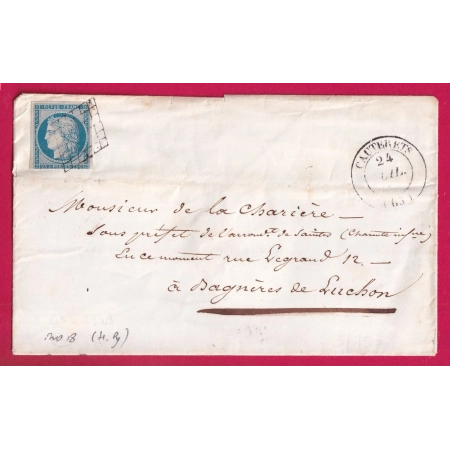 REPUB. FRANC.
CAUTERETS
24
JUIL.
(63)
Monsieur de la Charière —
Sous préfet de l'arrondt. de Saintes (Charente infre.)
En ce moment rue Legrand 12. —
à Bagnères de Luchon
(H. Py)